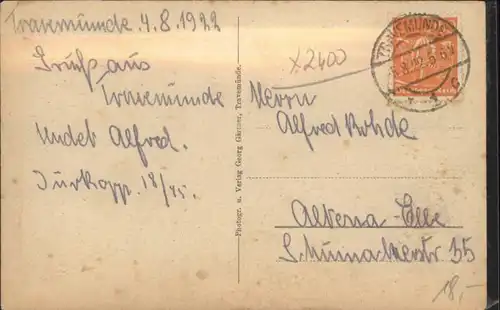 Travemünde 4.8.1922
Gruß aus
Travemünde
sendet Alfred.
Durkopp. 18/25.
Photogr. u. Verlag Georg Gärtner, Travemünde.
x2400
TRAVEMÜNDE
Herrn
Alfred Rohde
Altona-Elbe
Schumacherstr 55
18,-